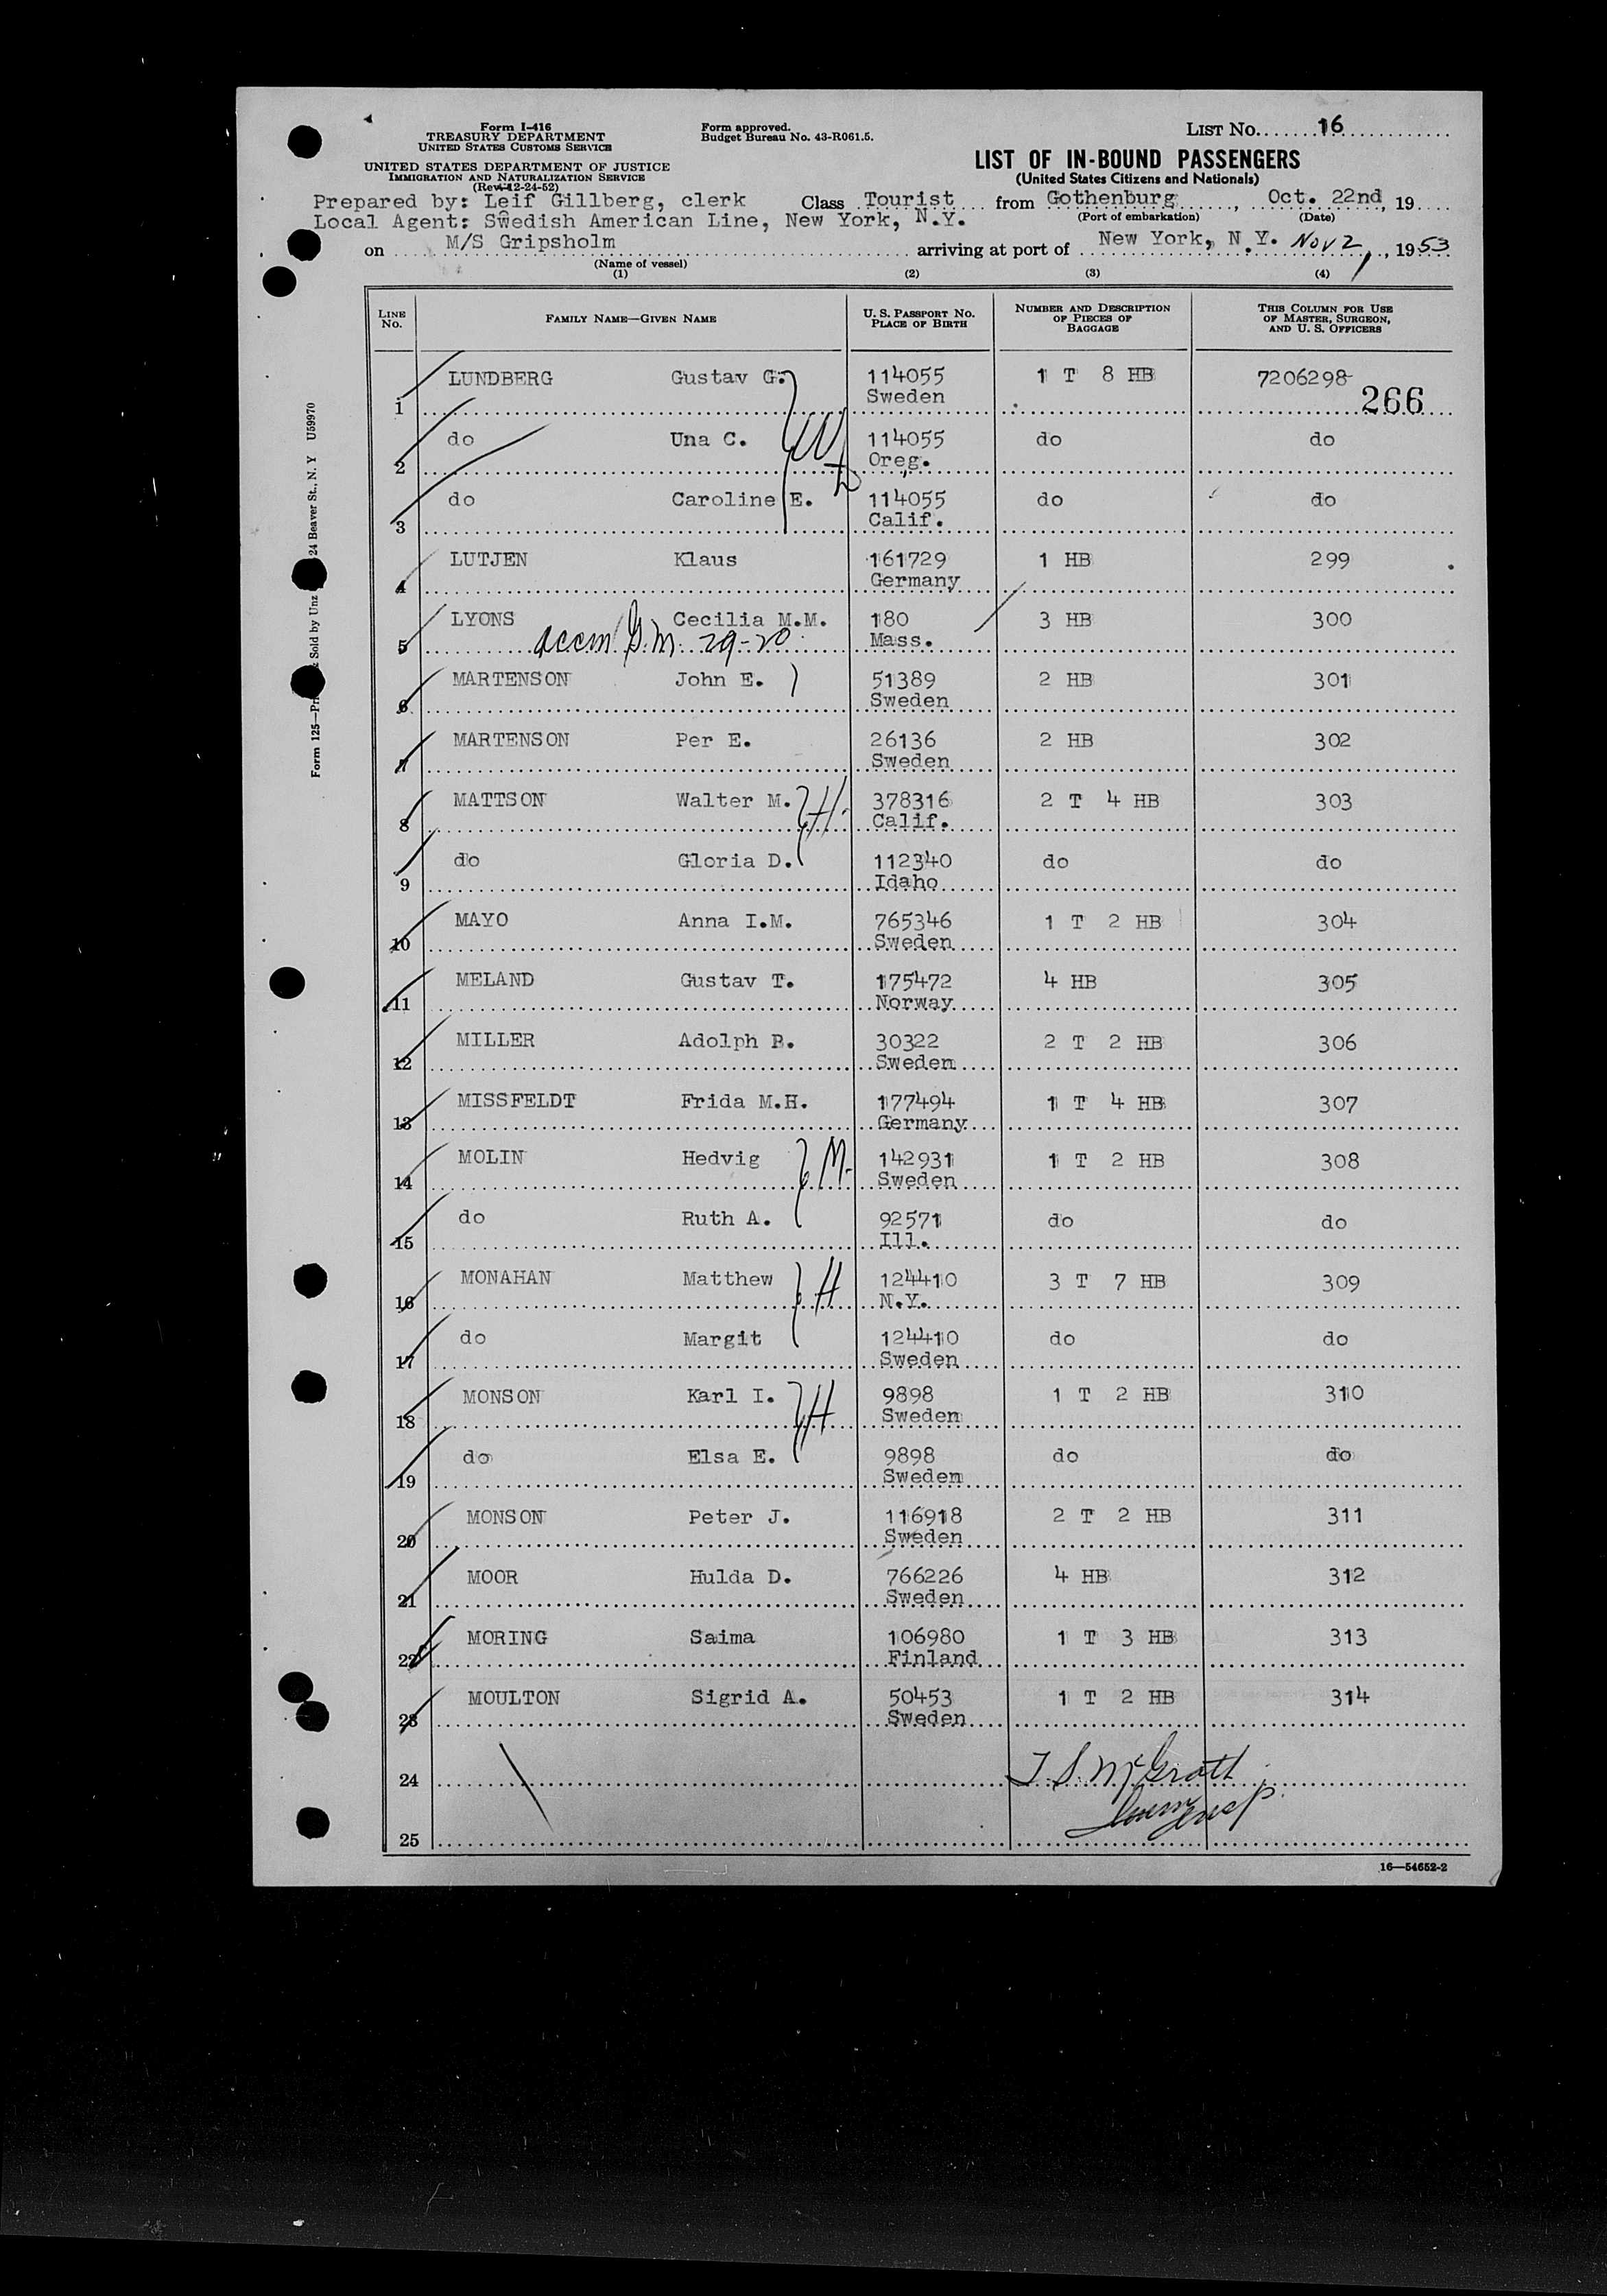 Form I-416
TREASURY DEPARTMENT
UNITED STATES CUSTOMS SERVICE
UNITED STATES DEPARTMENT OF JUSTICE
IMMIGRATION AND NATURALIZATION SERVICE
(Rev. 12-24-52)
Form approved.
Budget Bureau No. 43-R061.5.
LIST No. 16
LIST OF IN-BOUND PASSENGERS
(United States Citizens and Nationals)
Prepared by: Leif Gillberg, clerk Class Tourist from Gothenburg, Oct. 22nd, 19
(Port of embarkation) (Date)
Local Agent: Swedish American Line, New York, N.Y.
on M/S Gripsholm arriving at port of New York, N.Y. Nov 2, 1953
(Name of vessel)
(1) (2) (3) (4)
LINE No. FAMILY NAME—GIVEN NAME U. S. PASSPORT NO. PLACE OF BIRTH NUMBER AND DESCRIPTION OF PIECES OF BAGGAGE THIS COLUMN FOR USE OF MASTER, SURGEON, AND U. S. OFFICERS
1 LUNDBERG Gustav G. 114055 Sweden 1 T 8 HB 7206298 266
2 do Una C. 114055 Oreg. do do
3 do Caroline E. 114055 Calif. do do
4 LUTJEN Klaus 161729 Germany 1 HB 299
5 LYONS Cecilia M.M. 180 Mass. 3 HB 300
G.M. 29-20
6 MARTENSON John E. 51389 Sweden 2 HB 301
7 MARTENSON Per E. 26136 Sweden 2 HB 302
8 MATTSON Walter M. H. 378316 Calif. 2 T 4 HB 303
9 do Gloria D. 112340 Idaho do do
10 MAYO Anna I.M. 765346 Sweden 1 T 2 HB 304
11 MELAND Gustav T. 175472 Norway 4 HB 305
12 MILLER Adolph B. 30322 Sweden 2 T 2 HB 306
13 MISSFELDT Frida M.H. 177494 Germany 1 T 4 HB 307
14 MOLIN Hedvig M. 142931 Sweden 1 T 2 HB 308
15 do Ruth A. 92571 Ill. do do
16 MONAHAN Matthew H 124410 N.Y. 3 T 7 HB 309
17 do Margit 124410 Sweden do do
18 MONSON Karl I. H 9898 Sweden 1 T 2 HB 310
19 do Elsa E. 9898 Sweden do do
20 MONSON Peter J. 116918 Sweden 2 T 2 HB 311
21 MOOR Hulda D. 766226 Sweden 4 HB 312
22 MORING Saima 106980 Finland 1 T 3 HB 313
23 MOULTON Sigrid A. 50453 Sweden 1 T 2 HB 314
24 T. S. McGrath
Imm Insp.
25
16—54652-2
24 Beaver St., N. Y U59970
Form 125—
Sold by Unz